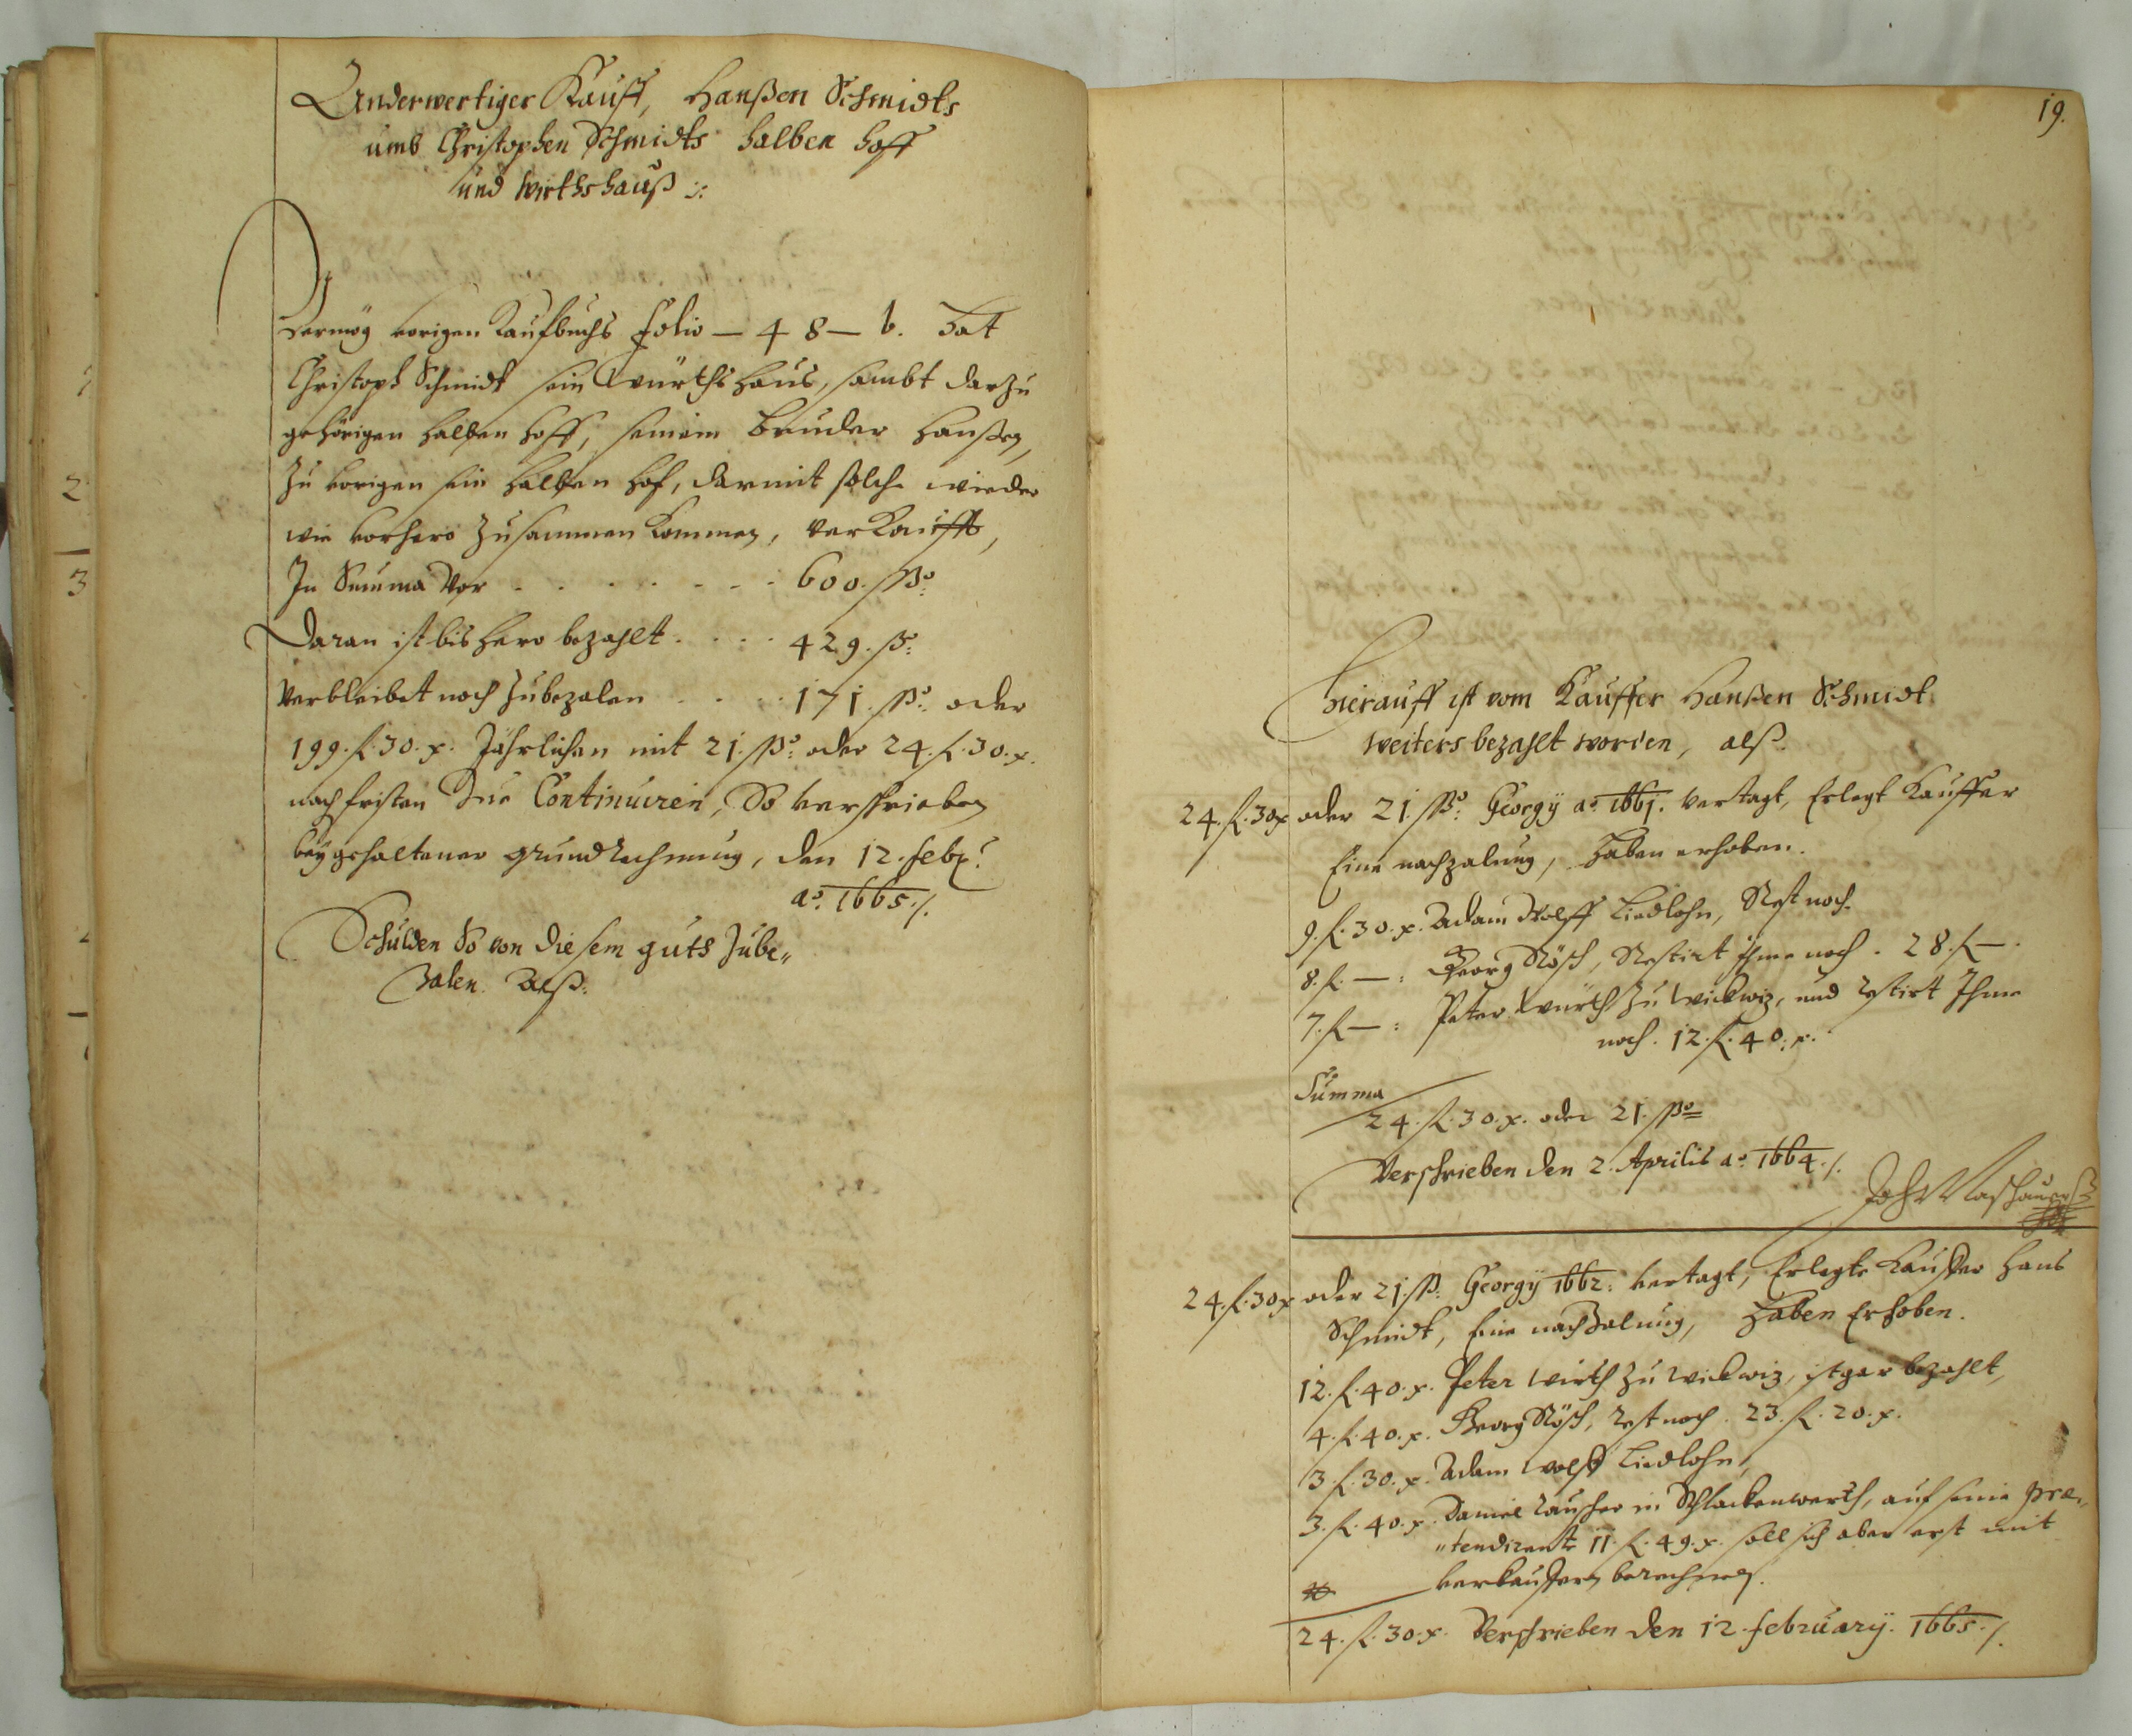 Anderwertiger Kauff, Hanßen Schmidts
umb Christophen Schmidts halben hoff
und Wirthshauß :/:
Vermög vorigen Kaufbuchs Folio — 48 — b. Hat
Christoph Schmidt sein Würthshaus, sambt darzu
gehörigen halben hoff, seinem Bruder Hanßen,
zu vorigen sein halben hof, darmit solche wieder
wie vorhero zusammen kommen, verkaufft,
In Summa vor - - - - - - 600. ßo:
Daran ist bishero bezahlt. . . . 429. ß:
Verbleibet noch zubezalen . . . 171. ßo: oder
199. f. 30. x. Jährlichen mit 21. ßo: oder 24. f. 30. x.
nach fristen Continuiren, So verschrieben
bey gehaltener grundrechnung, den 12. febr:
ao. 1665 ./.
Schulden So von diesem guts zube„
zalen. Alß:
19.
Hierauff ist vom Kauffer Hanßen Schmidt
weiters bezahlt worden, alß.
24. f. 30 x oder 21. ßo: Georgÿ ao. 1661. vertagt, Erlegt Kauffer
Eine nachzalung, Haben erhoben.
9. f. 30. x. Adam Wolff Liedlohn, Rest noch.
8. f. — : Georg Rösch, Restirt ihme noch . 28. f. — .
7. f. — : Peter Würth zu Wickwiz, und restirt Ihme
noch . 12. f. 40. x.
Summa
24. f. 30. x. oder 21. ßo
Verschrieben den 2. Aprilis ao. 1664 ./.
24. f. 30 x oder 21. ß: Georgÿ 1662: vertagt, Erlegte Kauffer Hans
Schmidt, Eine nachzalung, Haben Erhoben.
12. f. 40. x. Peter Wirth zu Wickwiz, ist gar bezahlt,
4. f. 40. x. Georg Rösch, rest noch . 23. f. 20. x.
3. f. 30. x. Adam Wolff Liedlohn,
3. f. 40. x. Daniel in Schlackenwerth, auf seine præ„
„tendirente 11. f. 49. x. soll sich aber erst mit
verkauffern berechnen.
24. f. 30. x. Verschrieben den 12. february. 1665 ./.